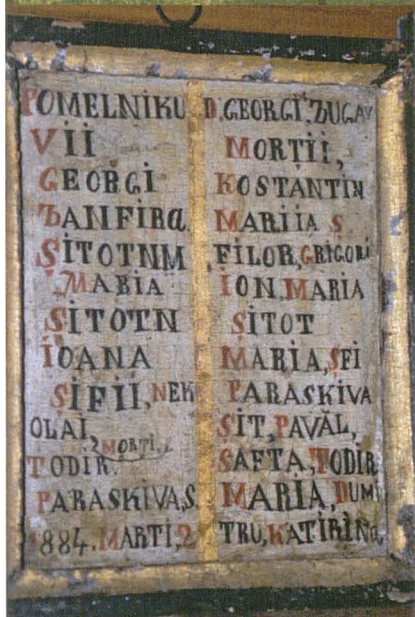 POMELNIKU D. GEORGI ZUGAV
VII
GEORGI
ZANFIRA
ȘITOTNM
MARIA
ȘITOTN
IOANA
ȘIFII, NEK
OLAI,
MORȚI,
TODIR.
PARASKIVA, S.
1884. MARTI, 2
MORȚII,
KOSTANTIN
MARIIA S
FILOR, GRIGORI
ION, MARIA
ȘITOT
MARIA, ȘFI
PARASKIVA
ȘIT, PAVĂL,
SAFTA, TODIR
MARIA, DUMI
TRU, KATIRINA,